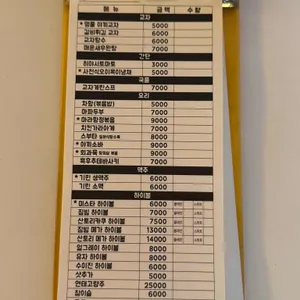 메 뉴 금 액 수 량
교자
* 명물 야끼교자 5000
김비튀김 교자 6000
교자탕수 6000
매운새우완탕 7000
간단
히야시토마토 3000
* 사천식오이목이냉채 5000
국물
교자계란스프 7000
요리
차항(볶음밥) 5000
마파두부 7000
* 마라항정볶음 9000
치킨가라아게 7000
스부타 8000
* 야끼소바 9000
* 회과육 9000
목후추테바사키 7000
맥주
* 기린 생맥주 6000
기린 소맥 6000
하이볼
* 미스타 하이볼 6000
짐빔 하이볼 7000
산토리카쿠 하이볼 7500
짐빔 메가 하이볼 13000
산토리 메가 하이볼 14000
얼그레이 하이볼 8000
유자 하이볼 8000
수이진 하이볼 6000
샷추가 5000
연태고량주 25000
참이슬 6000